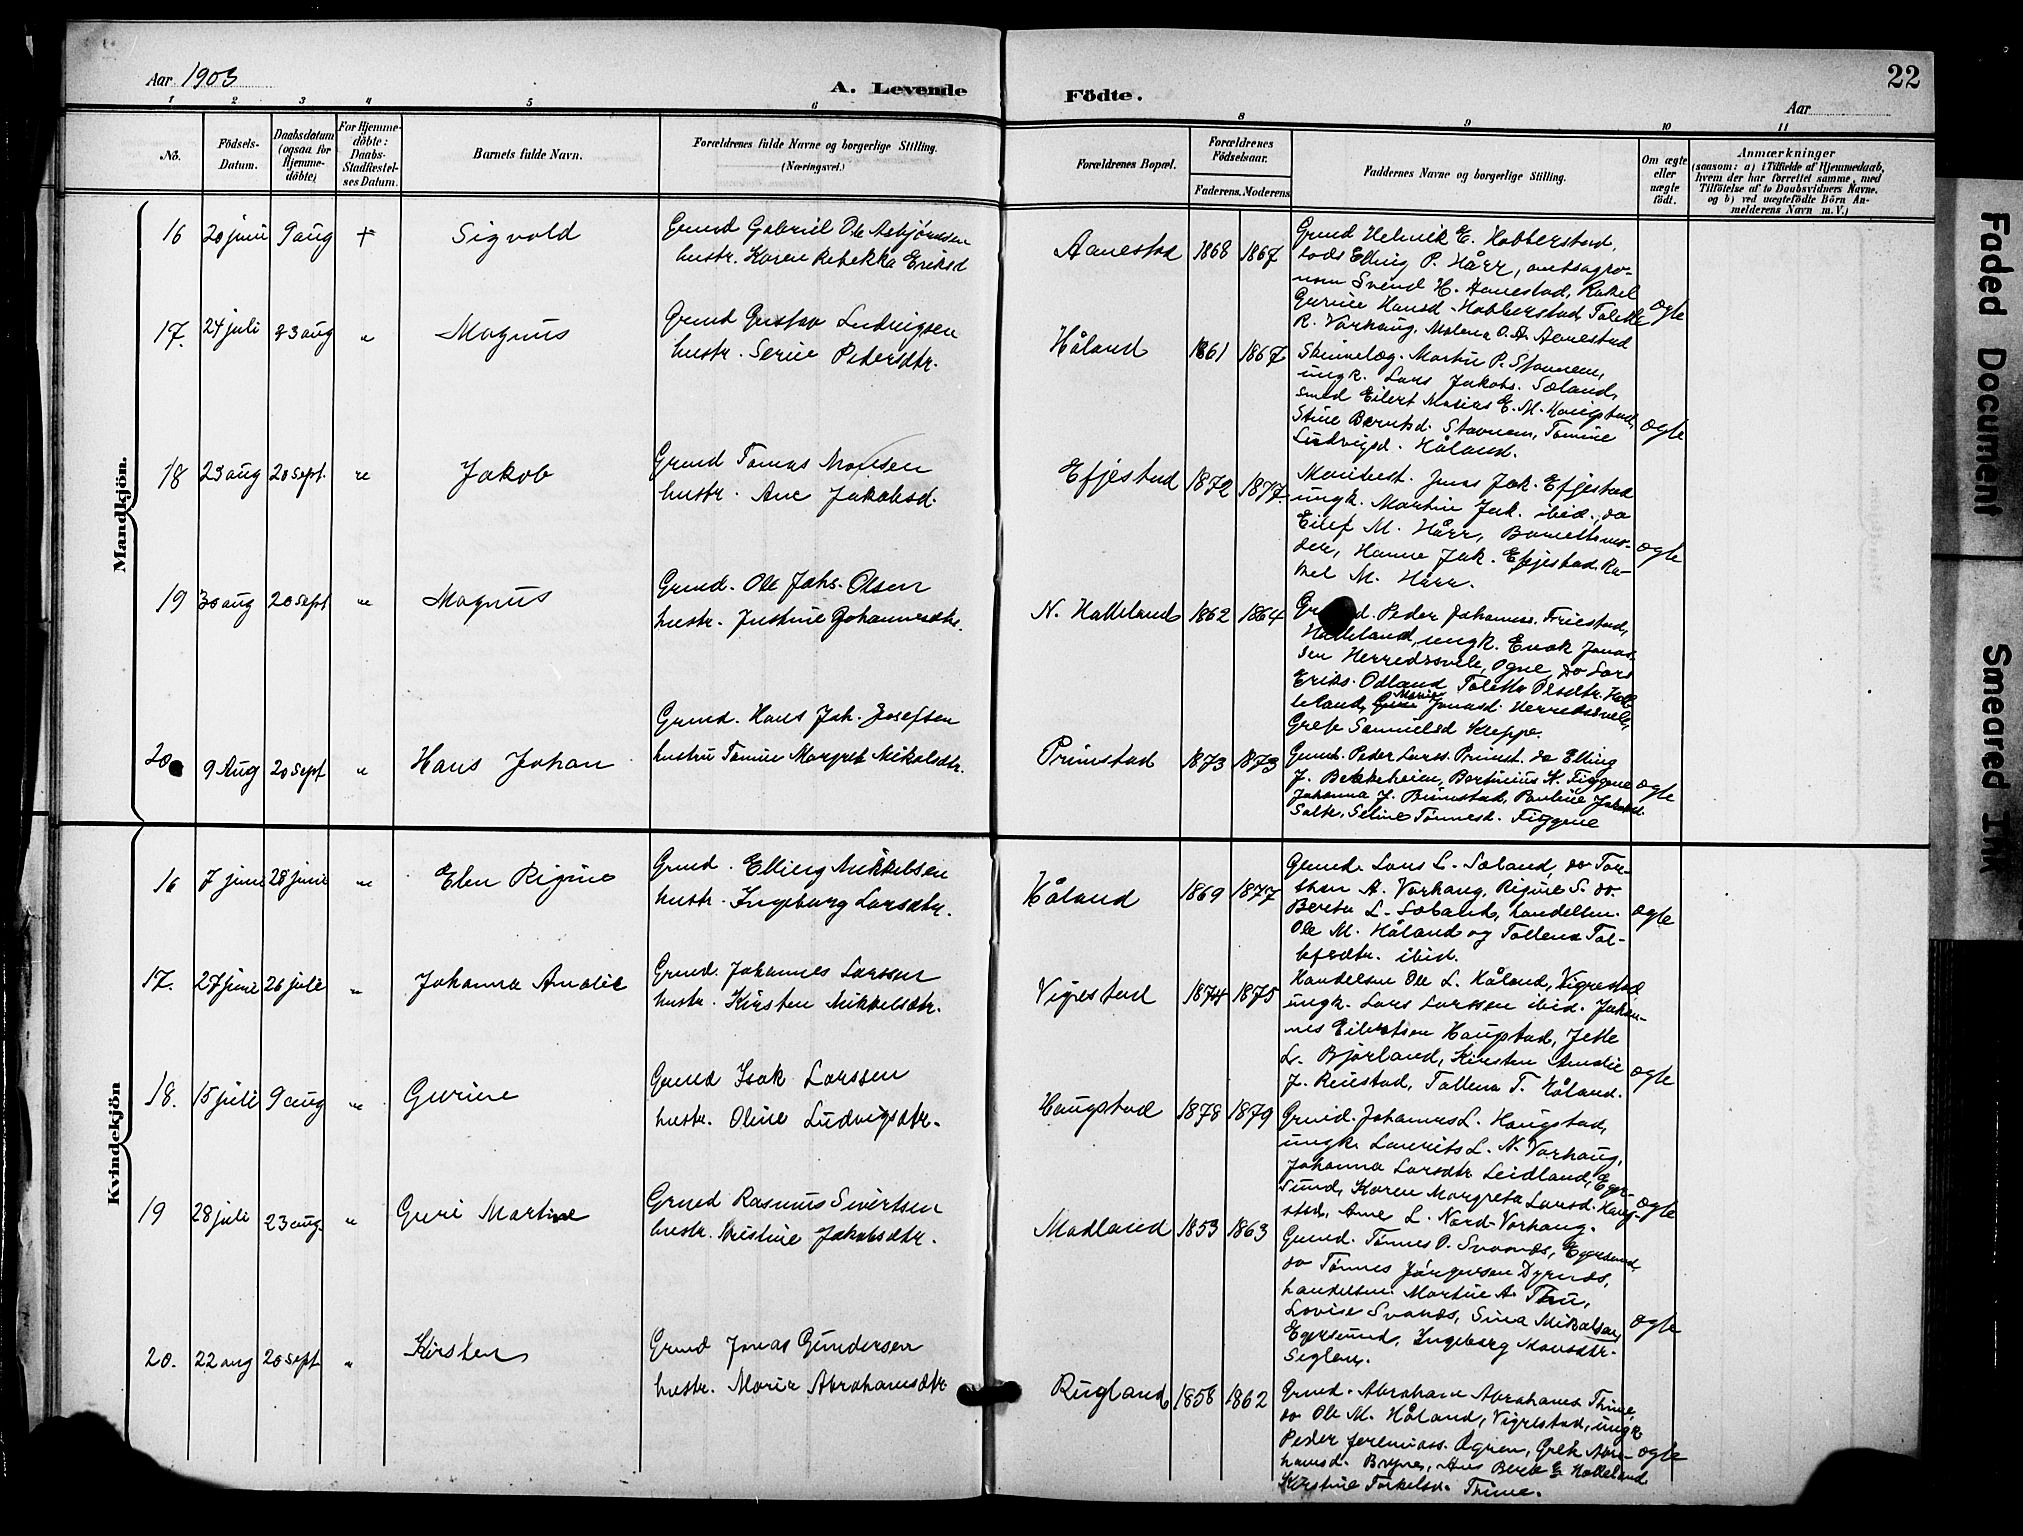 Aar 1903
A. Levende Födte.
Aar
22
1 2 3 4 5 6 8 9 10 11
No.
Födsels-Datum.
Daabsdatum (ogsaa for Hjemmedöbte)
For Hjemmedöbte: Daabs-Stadfæstelses Datum.
Barnets fulde Navn.
Forældrenes fulde Navne og borgerlige Stilling. (Næringsvei.)
Forældrenes Bopæl.
Forældrenes Födselsaar.
Faderens. Moderens
Faddernes Navne og borgerlige Stilling.
Om ægte eller uægte födt.
Anmærkninger
(saasom: a) i Tilfælde af Hjemmedaab,
hvem der har forrettet samme, med
Tilföielse af to Daabsvidners Navne,
og b) ved uægtefödte Börn An-
melderens Navn m. V.)
Mandkjön.
16 20 juni 9 aug + Sigvald
Grmd Gabriel Ole Asbjörnsen
hustr. Karen Rebekka Eriksd
Aanestad 1868 1867
Grmd Helmik E. Hobberstad,
Elling P. Hårr, amtsagro-
nom Svend H. Aanestad, Rakel
Gurine Hansd. Hobberstad, Tolette
R. Varhaug, Malena O. A. Aanestad
ægte
17. 24 juli 23 aug " Magnus
Grmd Gustav Ludvigsen
hustr. Serine Pedersdtr.
Håland 1861 1867
Martin P. Stavnem,
ungk. Lars Jakobs. Sæland,
smed Eilert Matias E. M. Haugstad,
Stine Berntsd. Stavnem, Tomine
Ludvigsd. Håland.
ægte
18 23 aug 20 sept. " Jakob
Grmd Tomas Monsen
hustr. Ane Jakobsd.
Efjestad 1872 1877
Jonas Jak. Efjestad
ungk. Martin Jak. ibid., do
Eilef M. Hårr, Barnets mo-
der, Hanne Jak. Efjestad. Ra-
kel M. Hårr.
ægte
19 30 aug 20 sept " Magnus
Grmd. Ole Johs. Olsen
hustr. Justine Johannesdtr.
N. Halleland 1862 1864
Peder Johanness. Friestad,
Halleland, ungk. Enok Jonas-
sen Herredsvele, Ogne, do Lars
Eriks. Odland, Tolette Olsdtr. Hal-
leland, Marie Jonasd. Herredsvele,
Grete Samuelsd Kleppe.
20 9 Aug 20 Sept " Hans Johan
Grmd. Hans Joh. Josefsen
hustru Tomine Margret Nikolsdtr.
Primstad 1873 1873
Grmd. Peder Larss. Primst. do Elling
J. Bekkeheien, Bertinius K. Figgne
Johanna J. Primstad, Pauline Jakobsd.
Salte, Seline Tönnesd. Figgne
ægte
Kvindekjön
16 7 juni 28 juni " Elen Rigine
Grmd. Elling Mikkelsen
hustr. Ingeborg Larsdtr.
Håland 1869 1877
Grmd. Lars L. Sæland, do Tor-
sten A. Varhaug, Rigine S. do.
Berta L. Sæland, handelsm.
Ole M. Håland og Tallena Tol-
lefsdtr. ibid.
ægte
17. 27 juni 26 juli " Johanna Amalie
Grmd. Johannes Larssen
hustr. Kirsten Mikkelsdtr.
Vigrestad 1874 1875
Handelsm Ole L. Håland, Vigrestad
ungk. Lars Larssen ibid. Johan-
nes Eilertsen Haugstad, Jette
L. Bjorland, Kirsten Amalie
J. Reiestad, Tallena T. Håland.
ægte
18. 15 juli 9 aug " Gurine
Grmd Isak Larssen
hustr. Oline Ludvigsdtr.
Haugstad 1878 1879
Grmd. Johannes L. Haugstad,
ungk. Laurits L. N. Varhaug,
Johanna Larsdtr Leidland, Eger-
sund, Karen Margreta Larsd. Haug-
stad, Ane L. Nord-Varhaug.
ægte
19 28 juli 23 aug. " Guri Martine
Grmd Rasmus Sivertsen
hustr. Kristine Jakobsdtr.
Madland 1853 1863
Grmd. Tönnes O. Svanæs, Egersund,
do Tönnes Jörgensen Dyrnæs,
handelsm. Martin A. Thu,
Lovise Svanæs, Sina Mikalsen,
Egersund, Ingeborg Monsdtr.
Siglem.
ægte
20. 22 aug 20 sept " Kirsten
Grmd Jonas Gundersen
hustr. Marie Abrahamsdtr
Rugland 1858 1862
Grmd. Abraham Abrahams. Thime,
do Ole M. Håland, Vigrestad, ungk
Peder Jeremiass. Ogren, Grete Abra-
hamsd. Bryne, Ane Berte E. Halleland
Kirstine Torkelsd. Thime.
ægte
Faded Document
Smeared Ink